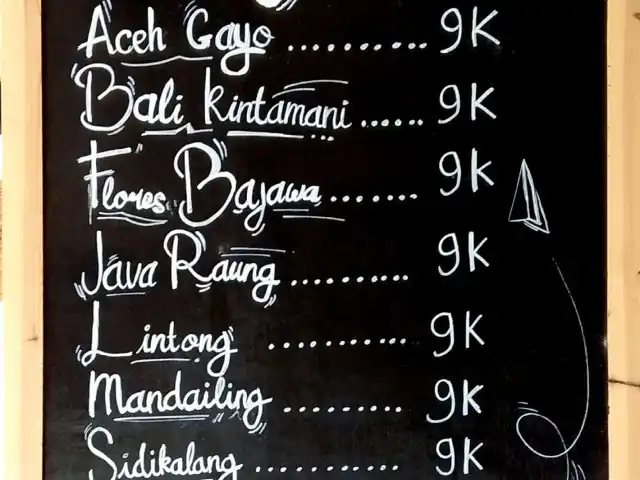 Aceh Gayo ........... 9K
Bali Kintamani ...... 9K
Flores Bajawa ....... 9K
Java Raung .......... 9K
Lintong ........... 9K
Mandailing ......... 9K
Sidikalang ........... 9K